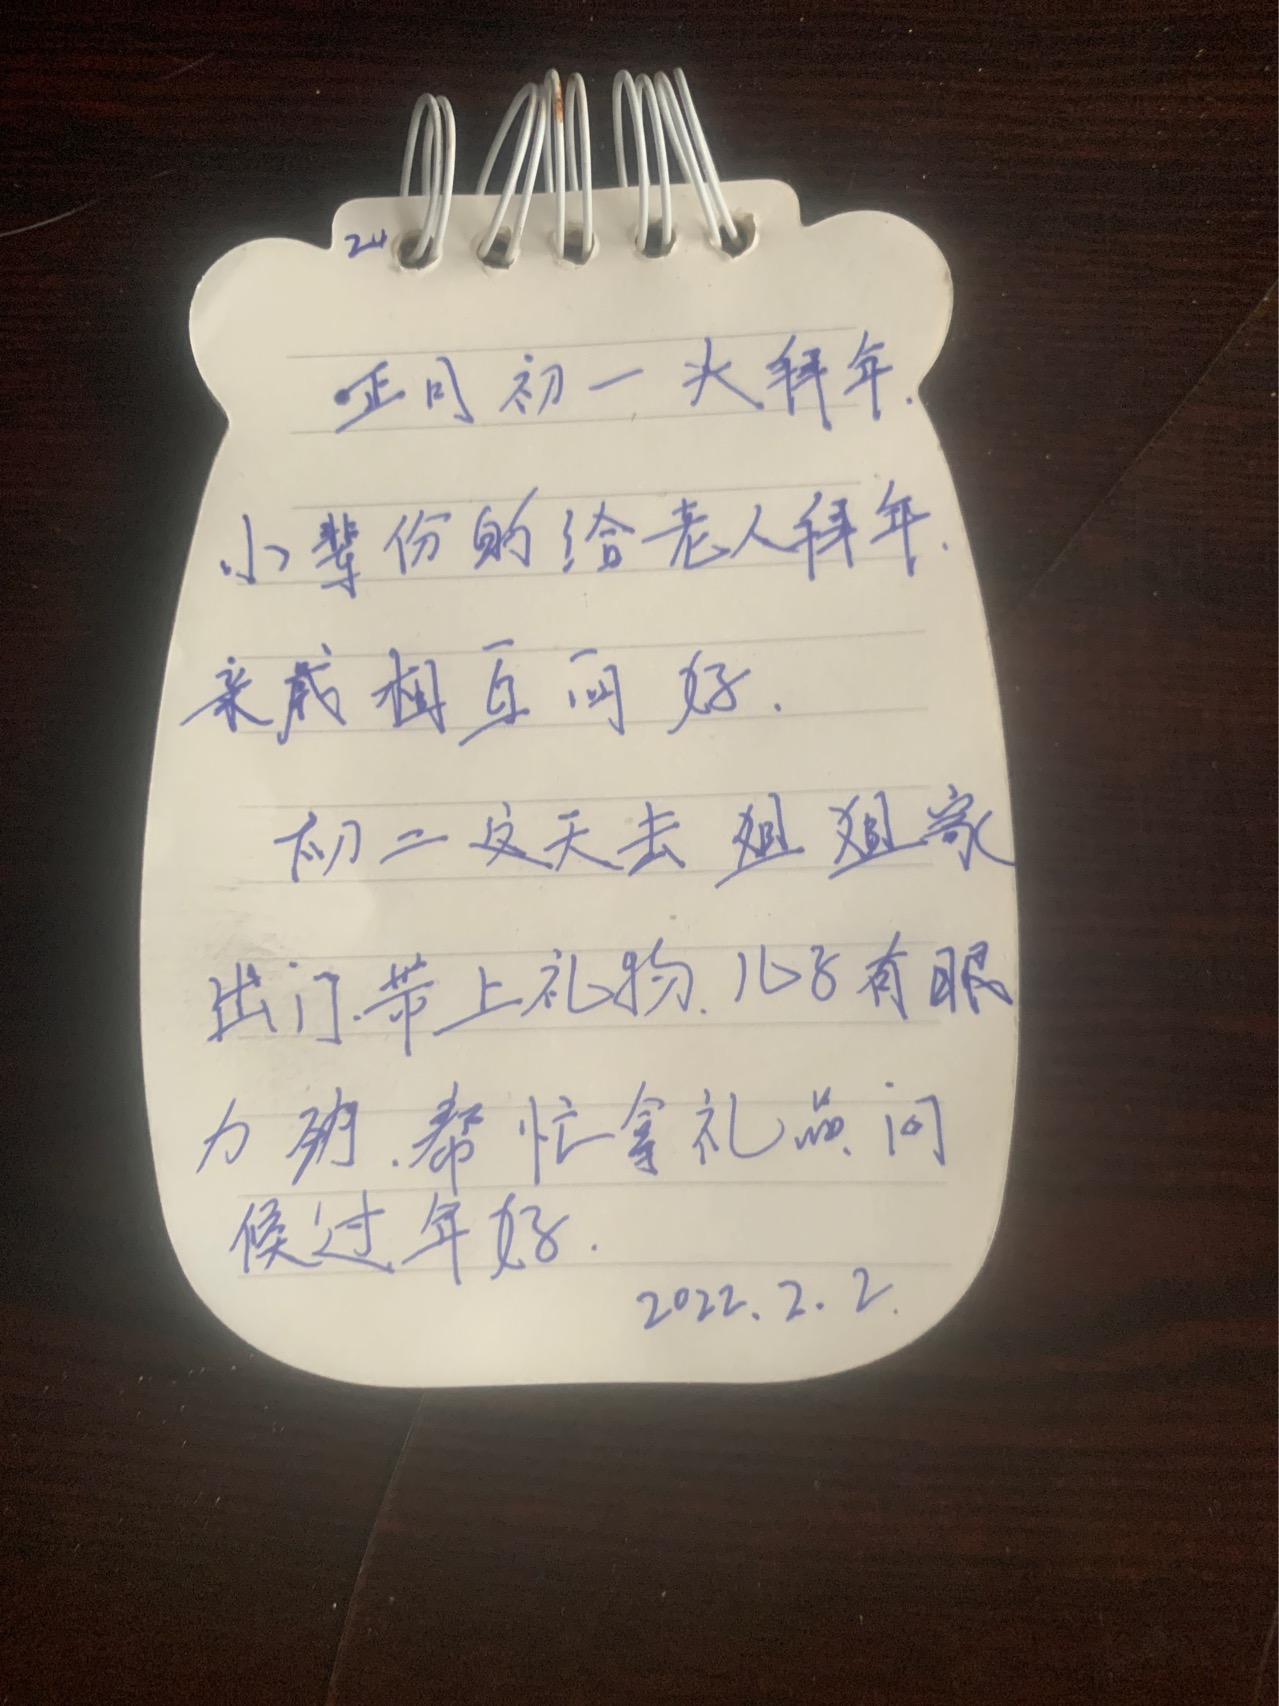 24
正月初一大拜年.
小辈份的给老人拜年.
亲戚相互问好.
初二这天去姐姐家
出门.带上礼物.儿子有眼
力.帮忙拿礼品.问
候过年好.
2022.2.2.